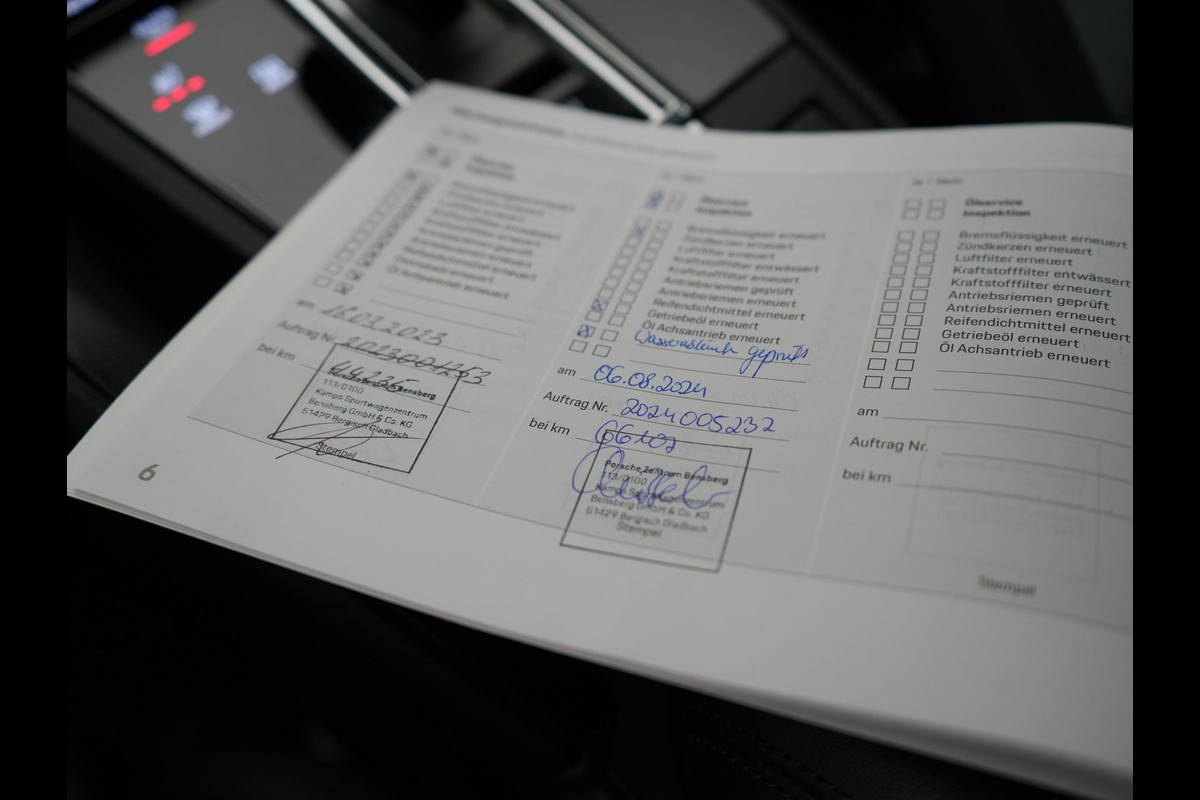 Ölservice
Inspektion
Bremsflüssigkeit erneuert
Zündkerzen erneuert
Luftfilter erneuert
Kraftstofffilter entwässert
Kraftstofffilter erneuert
Antriebsriemen geprüft
Antriebsriemen erneuert
Reifendichtmittel erneuert
Getriebeöl erneuert
Öl Achsantrieb erneuert
am 16.03.2023
Auftrag Nr. 2023001253
bei km
Porsche Zentrum Bensberg
113/0100
Kamps Sportwagenzentrum
Bensberg GmbH & Co. KG
51429 Bergisch Gladbach
Stempel
6
Ja / Nein
Ölservice
Inspektion
Bremsflüssigkeit erneuert
Zündkerzen erneuert
Luftfilter erneuert
Kraftstofffilter entwässert
Kraftstofffilter erneuert
Antriebsriemen geprüft
Antriebsriemen erneuert
Reifendichtmittel erneuert
Getriebeöl erneuert
Öl Achsantrieb erneuert
geprüft
am 06.08.2024
Auftrag Nr. 2024005232
bei km 66107
Porsche Zentrum Bensberg
113/0100
Kamps Sportwagenzentrum
Bensberg GmbH & Co. KG
51429 Bergisch Gladbach
Stempel
Ja / Nein
Ölservice
Inspektion
Bremsflüssigkeit erneuert
Zündkerzen erneuert
Luftfilter erneuert
Kraftstofffilter entwässert
Kraftstofffilter erneuert
Antriebsriemen geprüft
Antriebsriemen erneuert
Reifendichtmittel erneuert
Getriebeöl erneuert
Öl Achsantrieb erneuert
am
Auftrag Nr.
bei km
Stempel